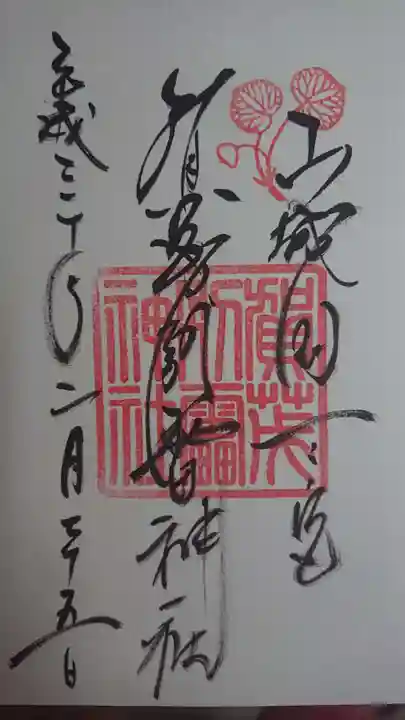 山城国一之宮
賀茂別雷神社
平成三十年二月二十五日
賀茂
別雷
神社